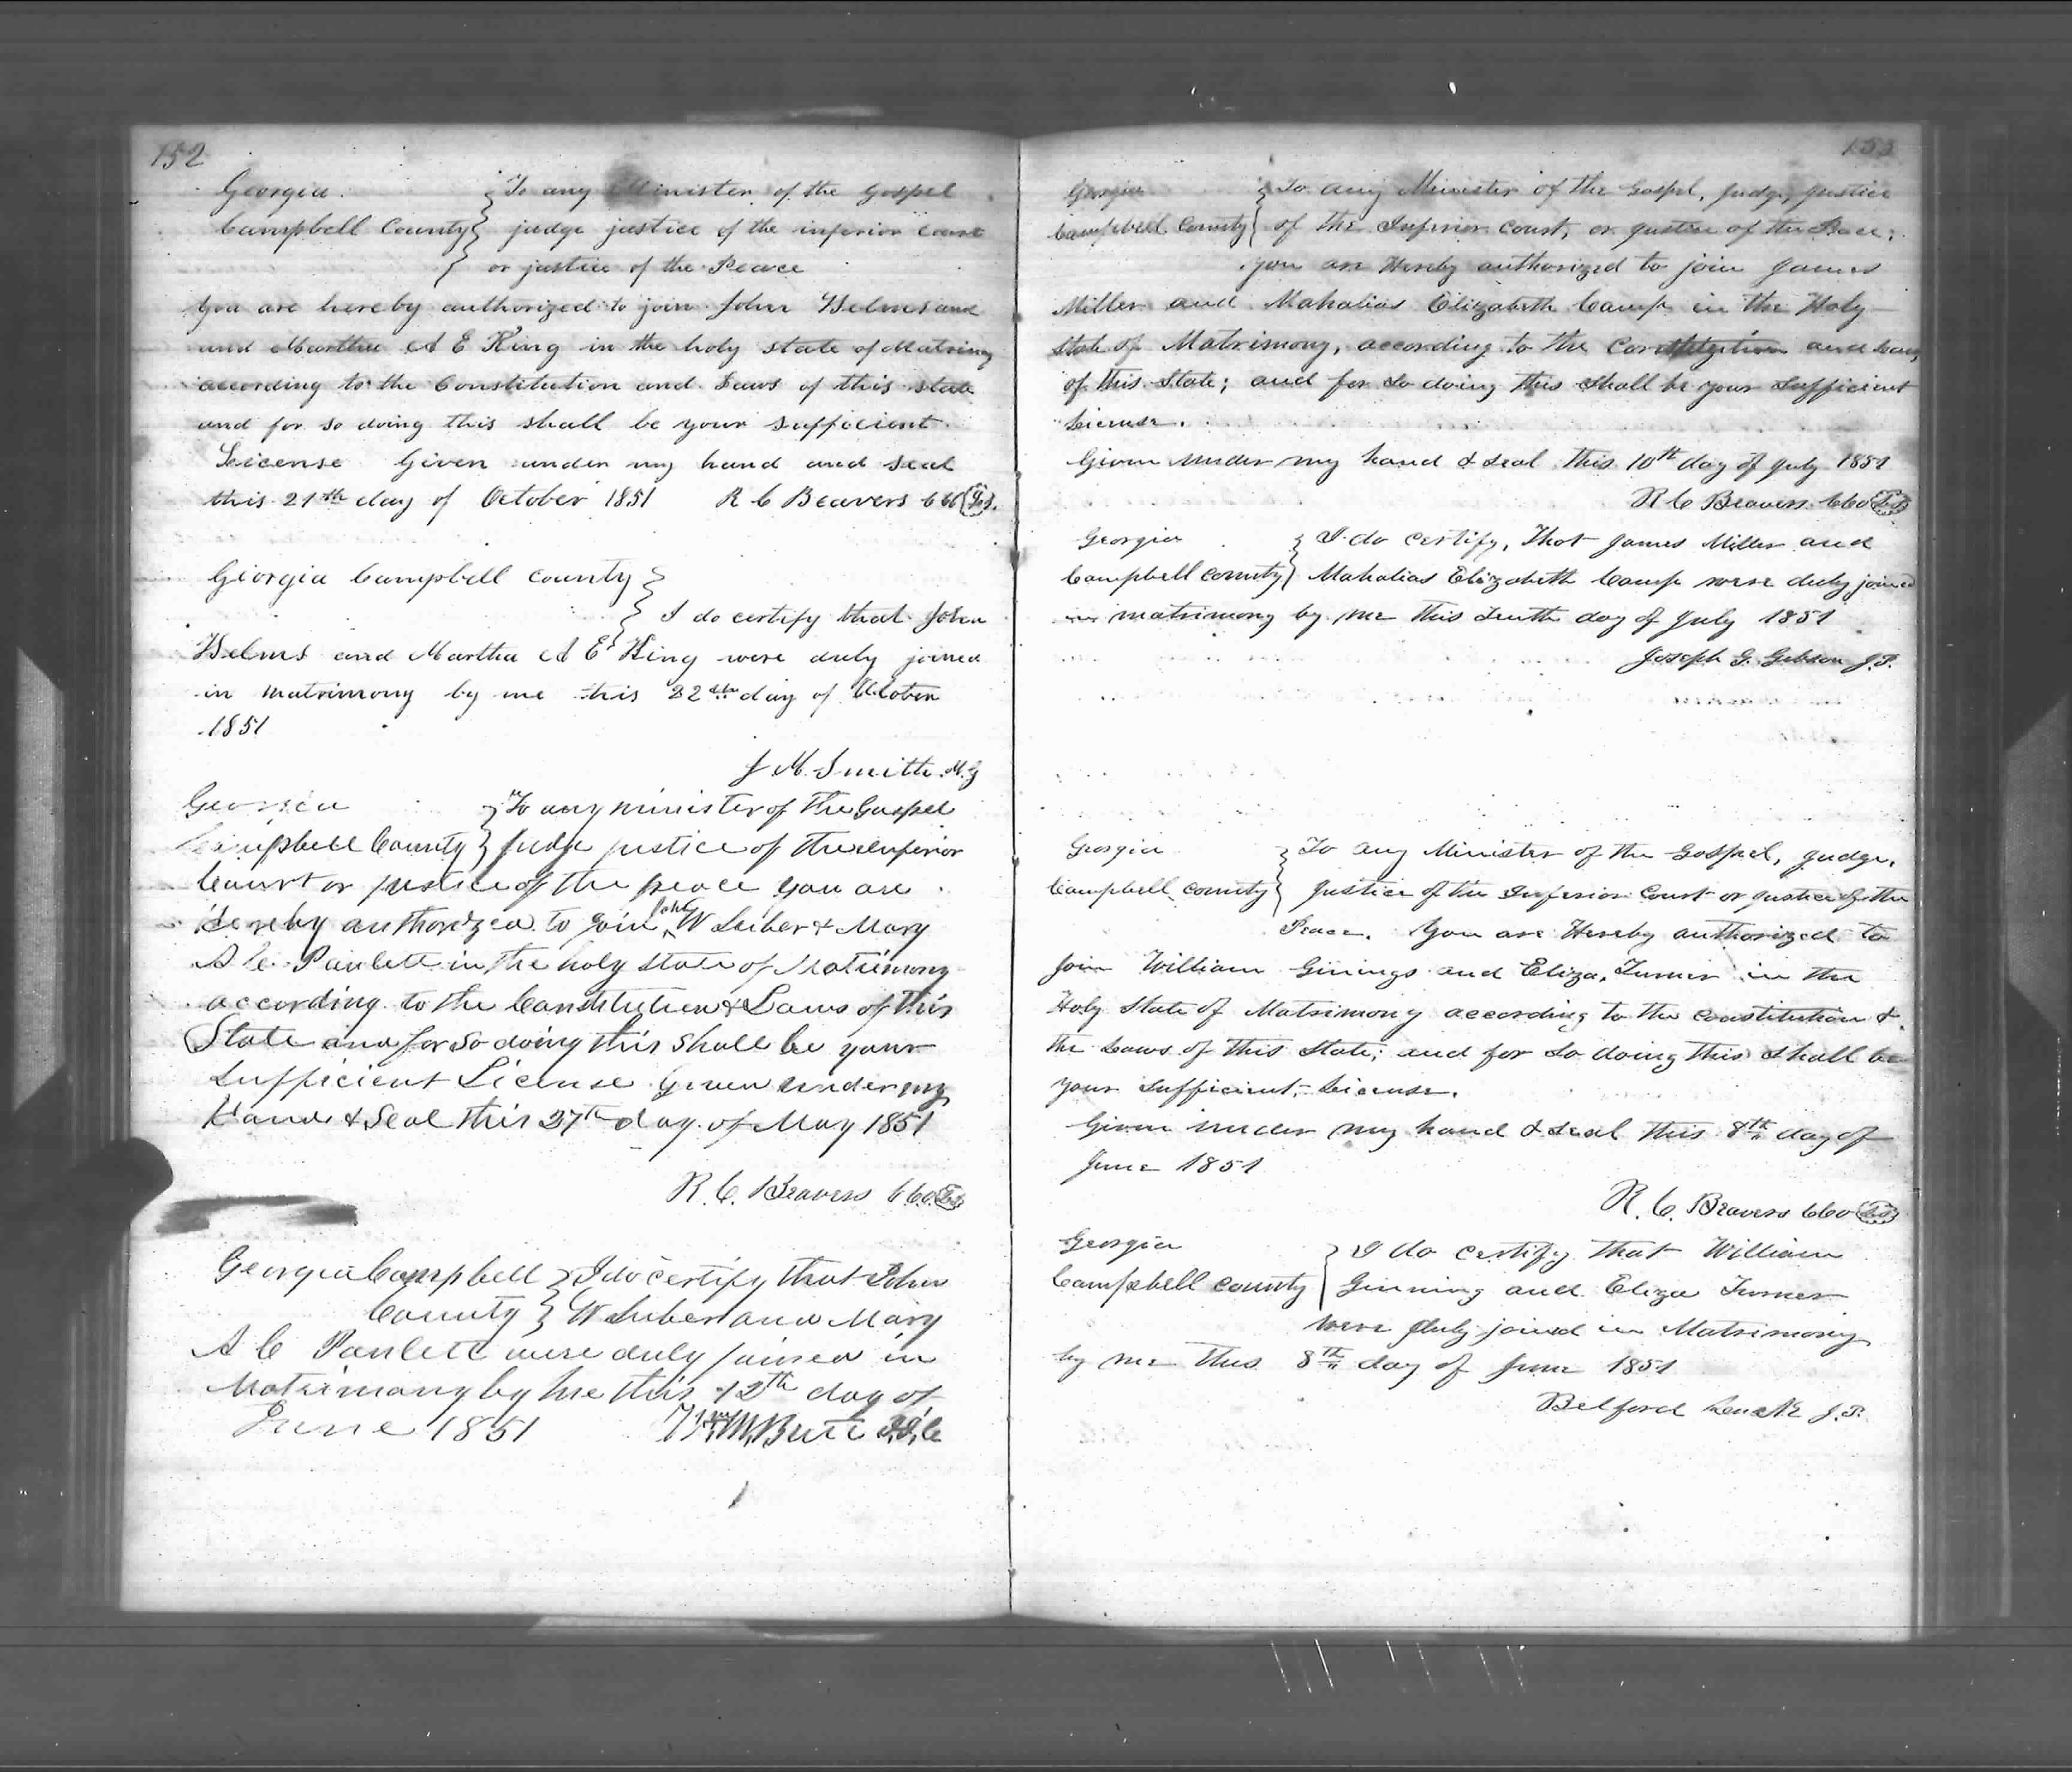 152
Georgia. } To any Minister of the Gospel
Campbell County } judge justice of the inferior court
} or justice of the Peace
You are hereby authorized to join John Helms and
and Martha A E King in the holy state of Matrimony
according to the Constitution and Laws of this state
and for so doing this shall be your sufficient
License Given under my hand and seal
this 21th day of October 1851 R C Beavers CCO L.S.
Georgia Campbell County }
} I do certify that John
Helms and Martha A E King were duly joined
in matrimony by me this 22th day of October
1851
J M. Smith M.G
Georgia } To any minister of the Gospel
Campbell County } Judge justice of the inferior
Court or justice of the peace you are
hereby authorized to join John W Luber & Mary
A C Paulett in the holy state of Matrimony
according to the Constitution & Laws of this
State and for so doing this shall be your
Sufficient License Given under my
Hand & Seal this 27th day of May 1851
R. C. Beavers CCO. L.S.
Georgia Campbell } I do certify that John
County } W Luber and Mary
A C Paulett were duly joined in
Matrimony by me this 12th day of
June 1851 Wm M. Butt J.I.C
153
Georgia } To any Minister of the Gospel, Judge, Justice
Campbell County } of the Inferior Court, or Justice of the Peace;
you are Hereby authorized to join James
Miller and Mahalias Elizabeth Camp in the Holy
state of Matrimony, according to the Constitution and Laws
of this State; and for So doing this Shall be your Sufficient
License.
Given under my hand & Seal this 10th day of July 1851
R C Beavers CCO L.S
Georgia } I do certify, That James Miller and
Campbell County } Mahalias Elizabeth Camp were duly joined
in matrimony by me this tenth day of July 1851
Joseph G. Gibson J.P.
Georgia } To any Minister of the Gospel, Judge,
Campbell County } Justice of the Inferior Court or Justice of the
Peace. You are Hereby authorized to
Join William Ginings and Eliza, Turner in the
Holy State of Matrimony according to the Constitution &
the Laws of this State; and for So doing this Shall be
your Sufficient, License.
Given under my hand & Seal this 8th day of
June 1851
R. C. Beavers CCO L.S
Georgia } I do certify that William
Campbell County } Ginning and Eliza Turner
were duly joined in Matrimony
by me this 8th day of June 1851
Belford J.P.